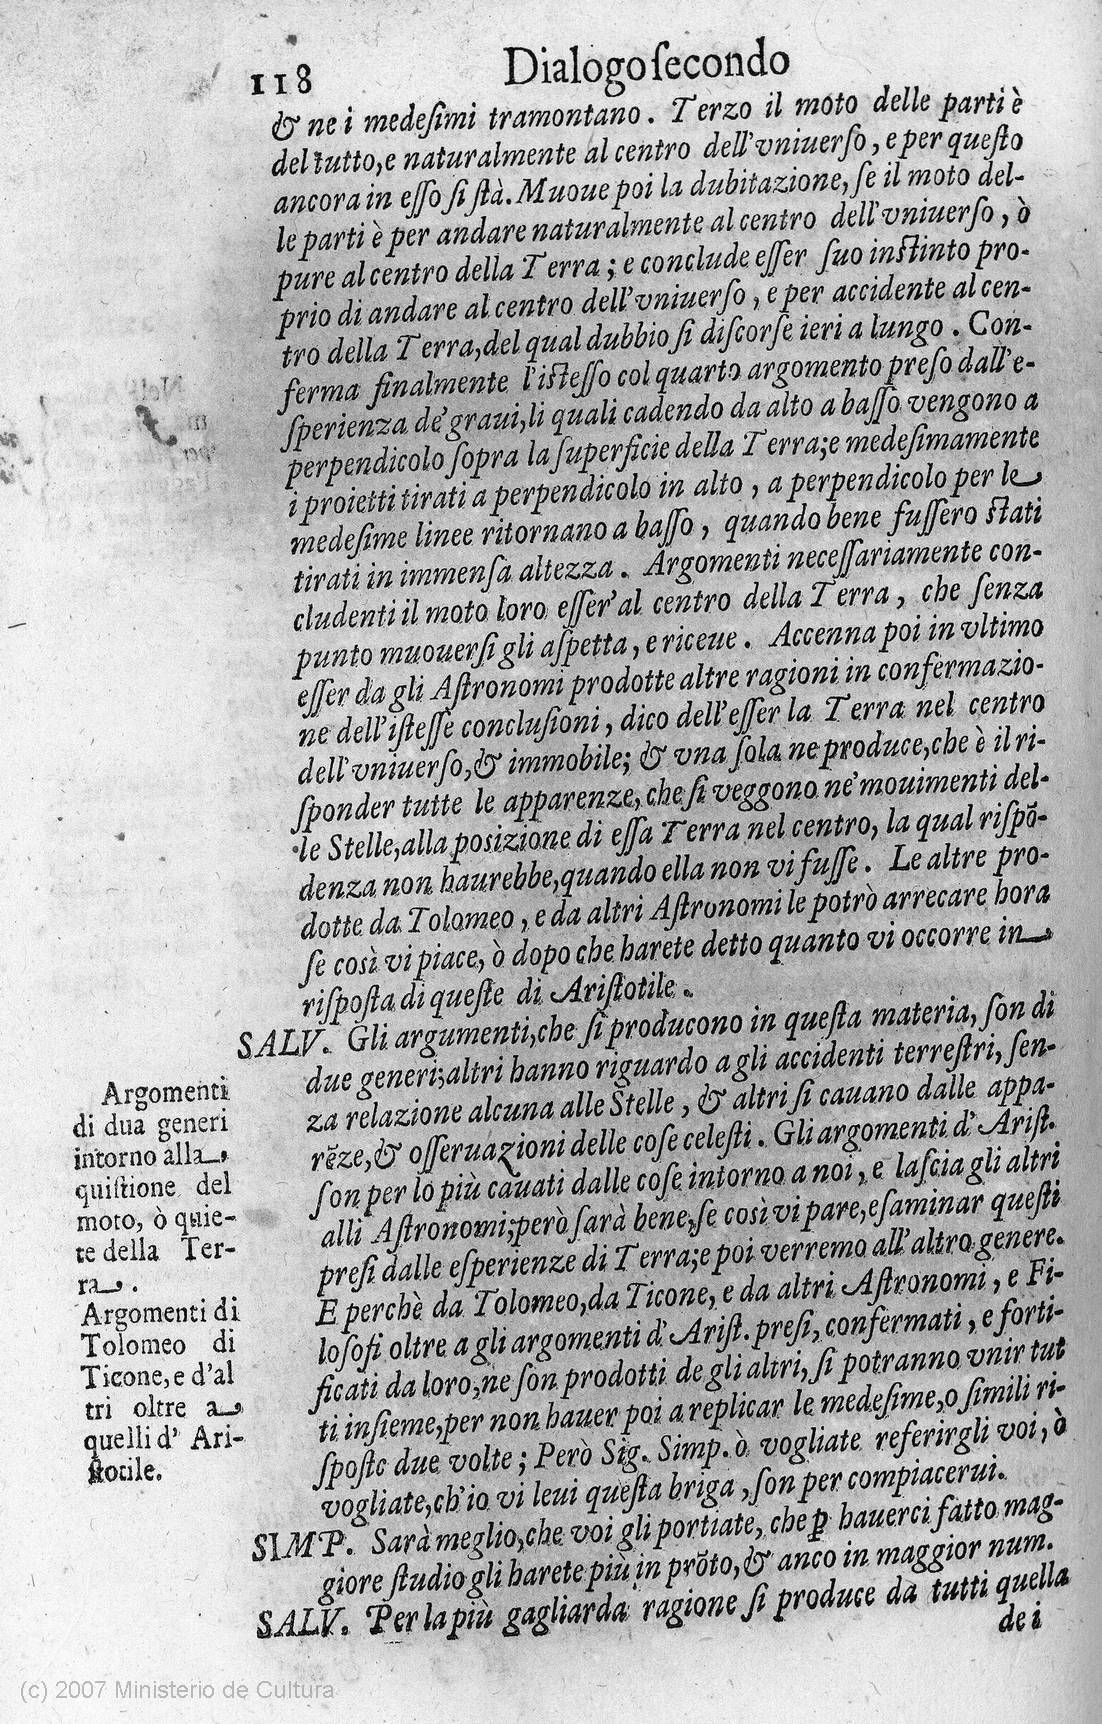 118
Dialogo ſecondo
& ne i medeſimi tramontano. Terzo il moto delle parti è
del tutto, e naturalmente al centro dell'vniuerſo, e per queſto
ancora in eſſo ſi ſtà. Muoue poi la dubitazione, ſe il moto del-
le parti è per andare naturalmente al centro dell'vniuerſo, ò
pure al centro della Terra; e conclude eſſer ſuo inſtinto pro-
prio di andare al centro dell'vniuerſo, e per accidente al cen-
tro della Terra, del qual dubbio ſi diſcorſe ieri a lungo. Con-
ferma finalmente l'iſteſſo col quarto argomento preſo dall'e-
ſperienza de' graui, li quali cadendo da alto a baſſo vengono a
perpendicolo ſopra la ſuperficie della Terra; e medeſimamente
i proietti tirati a perpendicolo in alto, a perpendicolo per le
medeſime linee ritornano a baſſo, quando bene fuſſero ſtati
tirati in immenſa altezza. Argomenti neceſſariamente con-
cludenti il moto loro eſſer'al centro della Terra, che ſenza
punto muouerſi gli aſpetta, e riceue. Accenna poi in vltimo
eſſer da gli Aſtronomi prodotte altre ragioni in confermazio-
ne dell'iſteſſe concluſioni, dico dell'eſſer la Terra nel centro
dell'vniuerſo, & immobile; & vna ſola ne produce, che è il ri-
ſponder tutte le apparenze, che ſi veggono ne' mouimenti del-
le Stelle, alla posizione di eſſa Terra nel centro, la qual riſpõ-
denza non haurebbe, quando ella non vi fuſſe. Le altre pro-
dotte da Tolomeo, e da altri Aſtronomi le potrò arrecare hora
ſe così vi piace, ò dopo che harete detto quanto vi occorre in
riſpoſta di queſte di Ariſtotile.
SALV. Gli argumenti, che ſi producono in queſta materia, ſon di
due generi; altri hanno riguardo a gli accidenti terreſtri, ſen-
za relazione alcuna alle Stelle, & altri ſi cauano dalle appa-
rẽze, & oſſeruazioni delle coſe celeſti. Gli argomenti d'Ariſt.
ſon per lo più cauati dalle coſe intorno a noi, e laſcia gli altri
alli Aſtronomi; però ſarà bene, ſe così vi pare, eſaminar queſti
preſi dalle eſperienze di Terra; e poi verremo all'altro genere.
E perchè da Tolomeo, da Ticone, e da altri Aſtronomi, e Fi-
loſofi oltre a gli argomenti d'Ariſt. preſi, confermati, e forti-
ficati da loro, ne ſon prodotti de gli altri, ſi potranno vnir tut
ti inſieme, per non hauer poi a replicar le medeſime, o ſimili ri-
ſpoſte due volte; Però Sig. Simp. ò vogliate referirgli voi, ò
vogliate, ch'io vi leui queſta briga, ſon per compiacerui.
SIMP. Sarà meglio, che voi gli portiate, che ꝑ hauerci fatto mag-
giore ſtudio gli harete più in prõto, & anco in maggior num.
SALV. Per la più gagliarda ragione ſi produce da tutti quella
de i
Argomenti
di dua generi
intorno alla
quiſtione del
moto, ò quie-
te della Ter-
ra.
Argomenti di
Tolomeo di
Ticone, e d'al
tri oltre a
quelli d'Ari-
ſtotile.
(c) 2007 Ministerio de Cultura